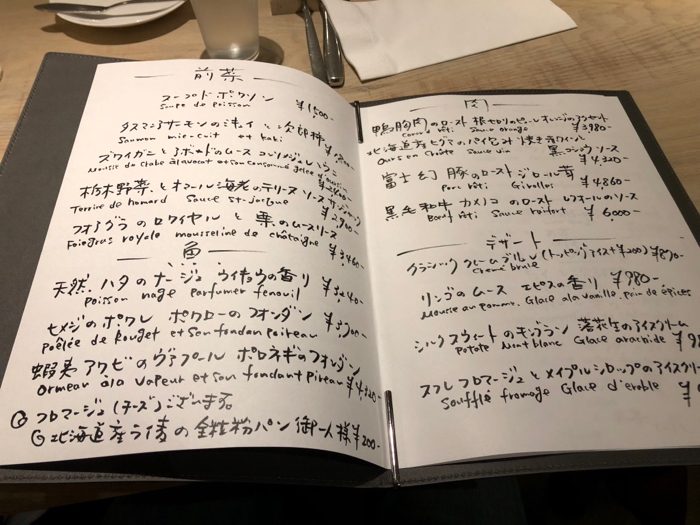 前菜
スープドポワソン
Soupe de poisson ¥1500-
タスマニアサーモンのミキュイ 次郎柿
Saumon mie-cuit et kaki
ズワイガニとアボカドのムース コンソメジュレ
Mousse du crabe àlavocat et son consommé gelée
栃木野菜とオマール海老のテリーヌ ソース
Terrine de homard Sauce st-jacque
フォアグラのロワイヤルと栗のムースリーヌ
Foiegras royale mousseline de châtaigne ¥3460-
魚
天然ハタのナージュ ウイキョウの香り
Poisson nage parfumer fenouil ¥3240-
ヒメジのポワレ ポワローのフォンダン
Poêlée de Rouget et son fondan poireau
蝦夷アワビのヴァプール ポロネギのフォンダン
Ormeau à la vapeur et son fondant
フロマージュ(チーズ)ございます。
北海道産 の全粒粉パン 御一人様¥200-
肉
鴨胸肉のロースト 根セロリのピューレ オレンジの
Canard rôti Sauce orange ¥3980-
北海道産ヒグマのパイ包み焼き 赤ワイン
Ours en Sauce vin ¥4320-
富士幻豚のロースト ジロール茸
Porc rôti Girolles ¥4860-
黒毛和牛カメノコのロースト レフォールのソース
Bœuf rôti Sauce raifort ¥6000-
デザート
クラシッククレームブリュレ(トッピングアイス+¥200)¥870-
Creme brulé
リンゴのムース エピスの香り ¥980-
Mousse au pomme. Glace ala vanille. pain de épices
シルクスウィートのモンブラン 落花生のアイスクリーム
Potate Mont blanc Glace arachide
スフレフロマージュとメイプルシロップのアイスクリーム
Soufflé fromage Glace d'erable